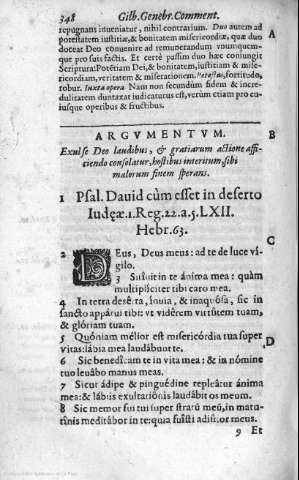 348 Gilb. Genebr. Comment.
repugnans inueniatur, nihil contrarium. Duo autem ad
potestatem iustitiæ, & bonitatem misericordiæ, quæ duo
A
doceat Deo conuenire ad remunerandum vnumquem-
que pro suis factis. Et certè passim duo hæc coniungit
Scriptura: Potétiam Dei, & bonitatem, iustitiam & mise-
ricordiam, veritatem & miserationem. Potestas, fortitudo,
robur. Iuxta opera. Nam non secundum fidem & incre-
dulitatem duntaxat iudicaturus est, verùm etiam pro cu-
iusque operibus & fructibus.
ARGVMENTVM. B
Exulse Deo laudibus, & gratiarum actione affi-
ciendo consolatur, hostibus interitum, sibi
malorum finem sperans.
1 Psal. Dauid cùm esset in deserto
Iudęæ. 1. Reg. 22. a. 5. LXII.
Hebr. 63.
C
2 DEus, Deus meus: ad te de luce vi-
gilo.
3 Sitiuit in te ánima mea: quàm
multiplíciter tibi caro mea.
4 In terra desérta, ínuia, & inaquósa, sic in
sancto appárui tibi: vt vidérem virtútem tuam,
& glóriam tuam.
5 Quóniam mélior est misericórdia tua super
vitas: lábia mea laudábunt te. D
6 Sic benedícam te in vita mea: & in nómine
tuo leuábo manus meas.
7 Sicut ádipe & pinguédine repleátur ánima
mea: & lábiis exultatiónis laudábit os meum.
8 Sic memor fui tui super stratũ meũ, in matu-
tínis meditábor in te: quia fuísti adiútor meus.
9 Et